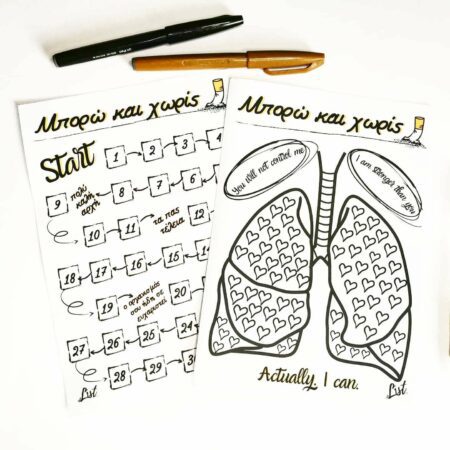 Μπορώ και χωρίς
Start 1 2 3 4
9 πολύ
καλή
αρχή 8 7 6
10 11 τα πας
τέλεια 12
18 17 16 15
19 ο οργανισμός
σου ήδη σε
ευχαριστεί 20
27 26 25 24
28 29 30
List
Μπορώ και χωρίς
You will not control me
I am stronger than you
Actually, I can.
List